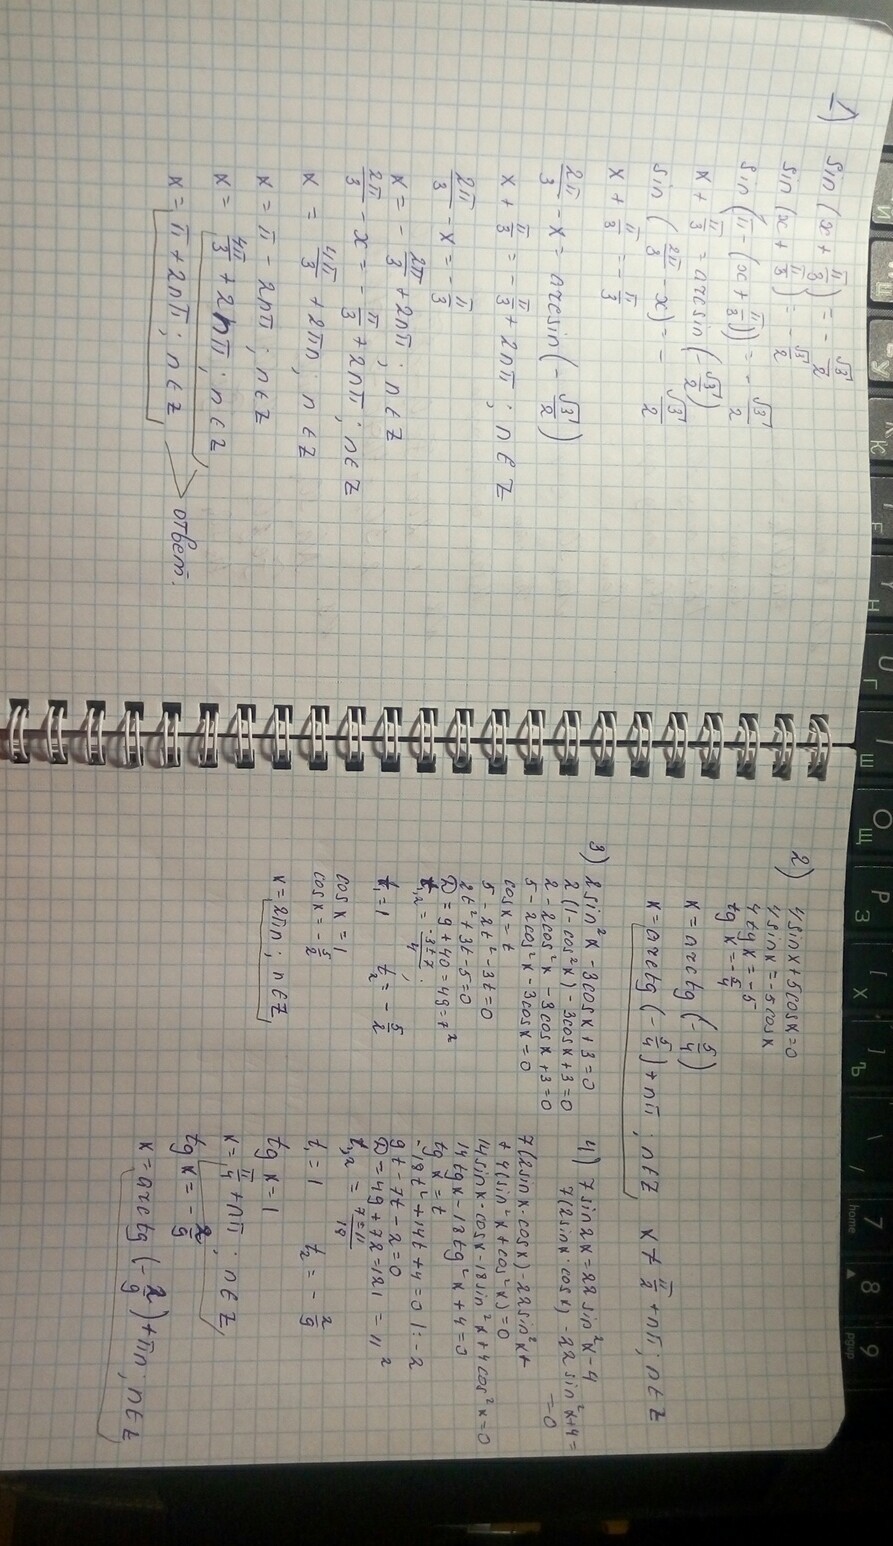 1) sin(x + π/3) = - √3/2
sin(x + π/3) = - √3/2
sin(π - (x + π/3)) = - √3/2
x + π/3 = arcsin(- √3/2)
sin(2π/3 - x) = - √3/2
x + π/3 = - π/3
2π/3 - x = arcsin(- √3/2)
x + π/3 = - π/3 + 2nπ; n ∈ Z
2π/3 - x = - π/3
x = - 2π/3 + 2nπ; n ∈ Z
2π/3 - x = - π/3 + 2nπ; n ∈ Z
x = 4π/3 + 2πn; n ∈ Z
x = π - 2nπ; n ∈ Z
x = 4π/3 + 2nπ; n ∈ Z
x = π + 2nπ; n ∈ Z
ответ.
2) 4sinx + 5cosx = 0
4sinx = -5cosx
4tgx = -5
tgx = - 5/4
x = arctg(- 5/4)
x = arctg(- 5/4) + nπ; n ∈ Z x ≠ π/2 + nπ; n ∈ Z
3) 2sin²x - 3cosx + 3 = 0
2(1 - cos²x) - 3cosx + 3 = 0
2 - 2cos²x - 3cosx + 3 = 0
5 - 2cos²x - 3cosx = 0
cosx = t
5 - 2t² - 3t = 0
2t² + 3t - 5 = 0
D = 9 + 40 = 49 = 7²
t₁,₂ = -3±7/4;
t₁ = 1 t₂ = - 5/2
cosx = 1
cosx = - 5/2
x = 2πn; n ∈ Z
4) 7sin2x = 22sin²x - 4
7(2sinx·cosx) - 22sin²x + 4 =
= 0
7(2sinx·cosx) - 22sin²x +
+ 4(sin²x + cos²x) = 0
14sinx·cosx - 18sin²x + 4cos²x = 0
14tgx - 18tg²x + 4 = 0
tgx = t
-18t² + 14t + 4 = 0 |: -2
9t - 7t - 2 = 0
D = 49 + 72 = 121 = 11²
t₁,₂ = 7±11/18
t₁ = 1 t₂ = - 2/9
tgx = 1
x = π/4 + nπ; n ∈ Z
tgx = - 2/9
x = arctg(- 2/9) + πn; n ∈ Z